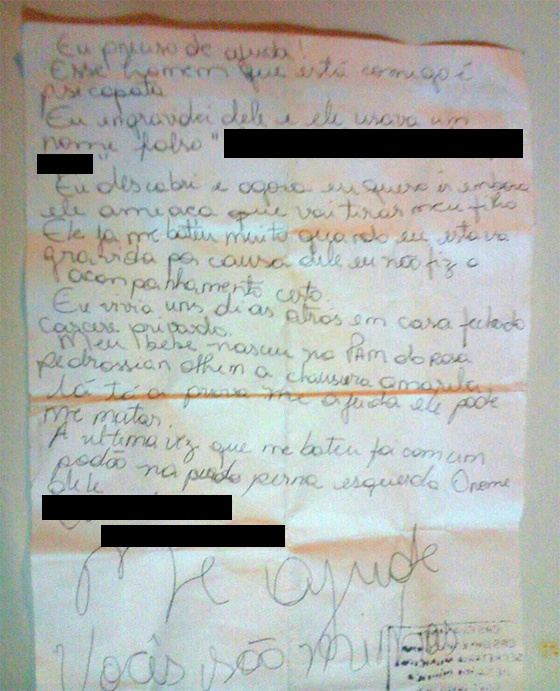 Eu preciso de ajuda!
Esse homem que está comigo é
psicopata
Eu engravidei dele e ele usava um
nome falso "
"
Eu descobri e agora eu quero ir embora
ele ameaça que vai tirar meu filho
Ele ja me bateu muito quando eu estava
gravida por causa dele eu não fiz o
acompanhamento certo.
Eu vivia uns dias atras em casa fechado
carcere privado.
Meu bebê nasceu no PAM do rosa
pedrossian olhem a chausura amarela,
lá tá a prova me ajuda ele pode
me matar.
A ultima vez que me bateu foi com um
podão na perna esquerda O nome
dele
Me ajude
Vocês são